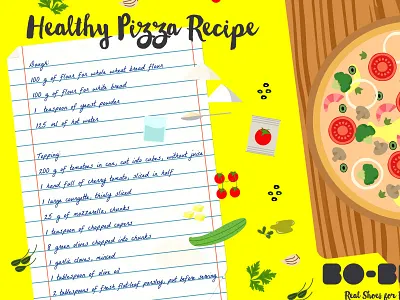 Healthy Pizza Recipe
Dough:
100 g of flour for whole wheat bread flour
100 g of flour for white bread
1 teaspoon of yeast powder
125 ml of hot water
Topping:
200 g of tomatoes in can, cut into cubes, without juice
1 hand full of cherry tomato, sliced in half
1 large courgette, thinly sliced
25 g of mozzarella, chunks
1 teaspoon of chopped capers
8 green olives chopped into chunks
1 garlic cloves, minced
1 tablespoon of olive oil
2 tablespoons of fresh flat-leaf parsley, put before serving
BO-B
Real Shoes for